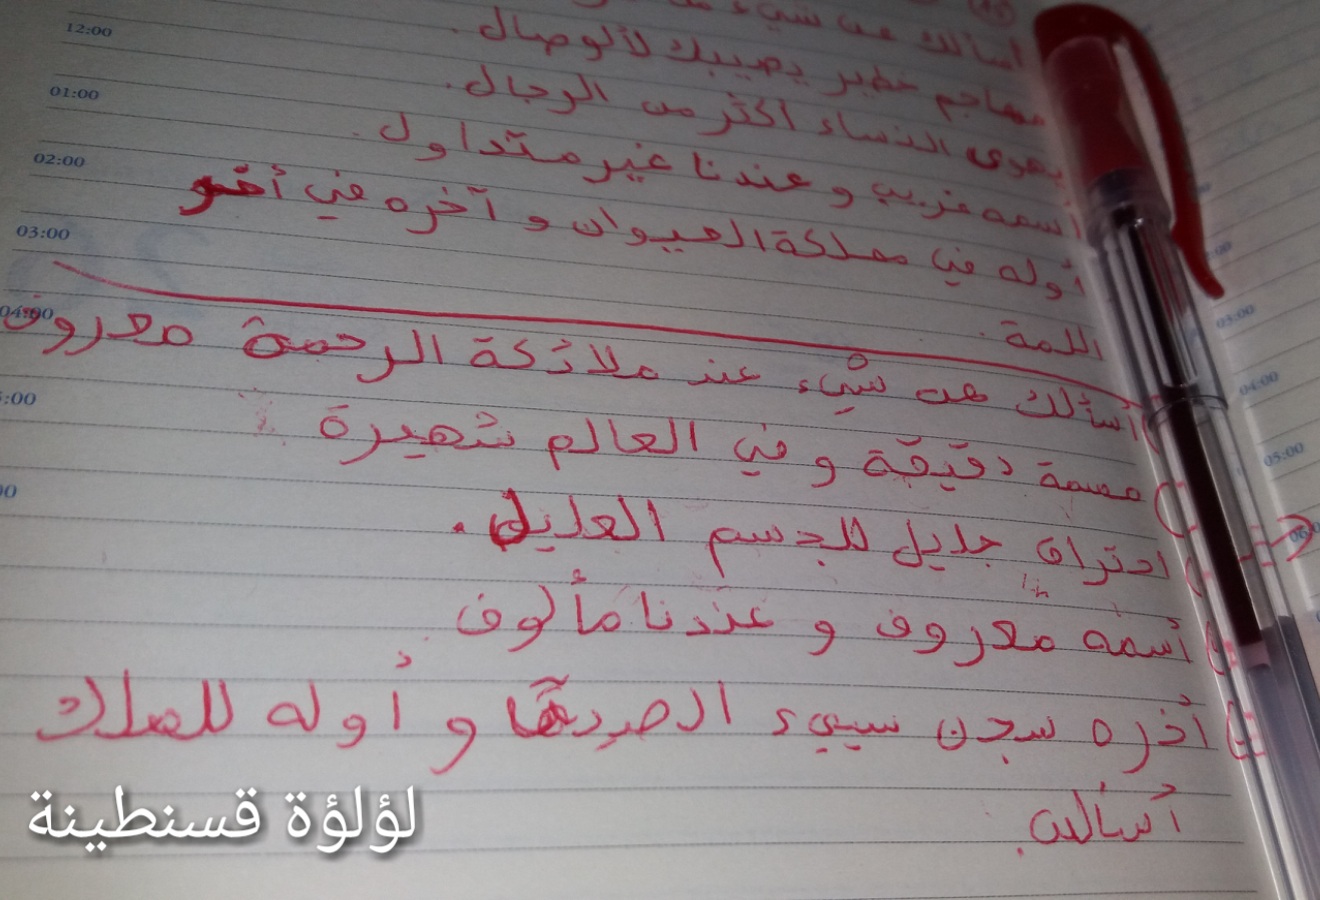 أسألك عن شيء
مهاجم خطير يصيبك لألوصال.
يهوى النساء أكثر من الرجال.
أسمه غريب وعندنا غير متداول.
أوله في مملكة الحيوان و آخره في أخر
اللمة.
أسألك عن شيء عند ملائكة الرحمة معروف
مهمة دقيقة و في العالم شهيرة
احتراق جليل للجسم العليل.
أسمه معروف و عندنا مألوف.
أخره سجن سييء الصيت و أوله للملك
أسألك.
12:00
01:00
02:00
03:00
04:00
5:00
00
03:00
04:00
05:00
لؤلؤة قسنطينة